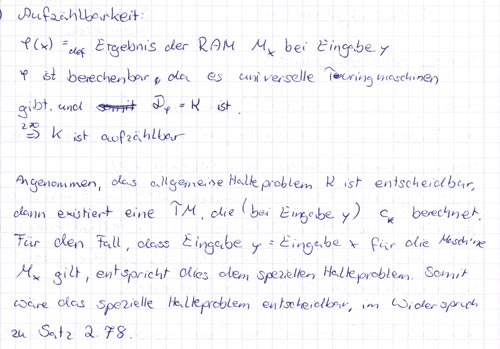 ) Aufzählbarkeit:
φ(x) =def Ergebnis der RAM Mx bei Eingabe y
φ ist berechenbar, da es universelle Touringmaschinen
gibt, und somit Dφ = K ist.
2.70 ⇒ K ist aufzählbar
Angenommen, das allgemeine Halteproblem K ist entscheidbar,
dann existiert eine TM, die (bei Eingabe y) cK berechnet.
Für den Fall, dass Eingabe y = Eingabe x für die Maschine
Mx gilt, entspricht dies dem speziellen Halteproblem. Somit
wäre das spezielle Halteproblem entscheidbar, im Widerspruch
zu Satz 2.78.